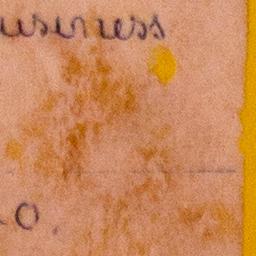 business
o.